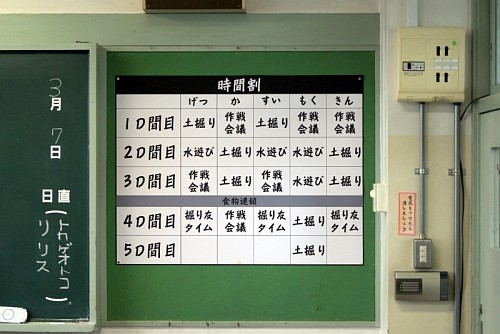 3月7日
日直(トカゲオトコ
リリス)
時間割
げつ か すい もく きん
1D間目 土掘り 作戦会議 土掘り 作戦会議 作戦会議
2D間目 水遊び 土掘り 水遊び 水遊び 土掘り
3D間目 作戦会議 土掘り 作戦会議 水遊び 土掘り
食物連鎖
4D間目 掘り友タイム 作戦会議 掘り友タイム 土掘り 掘り友タイム
5D間目 土掘り